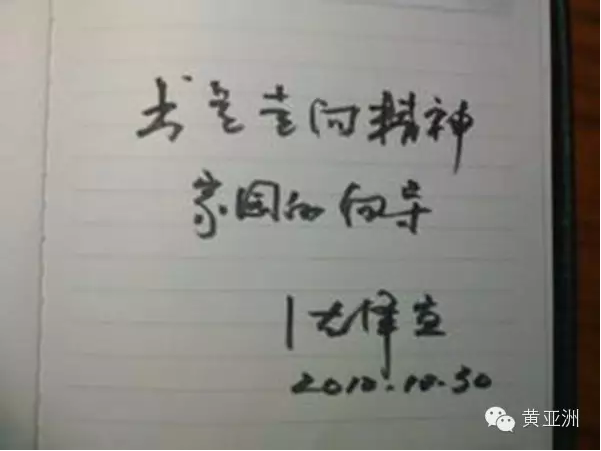 书是走向精神
家园的向导
沈泽宜
2010.10.30
黄亚洲